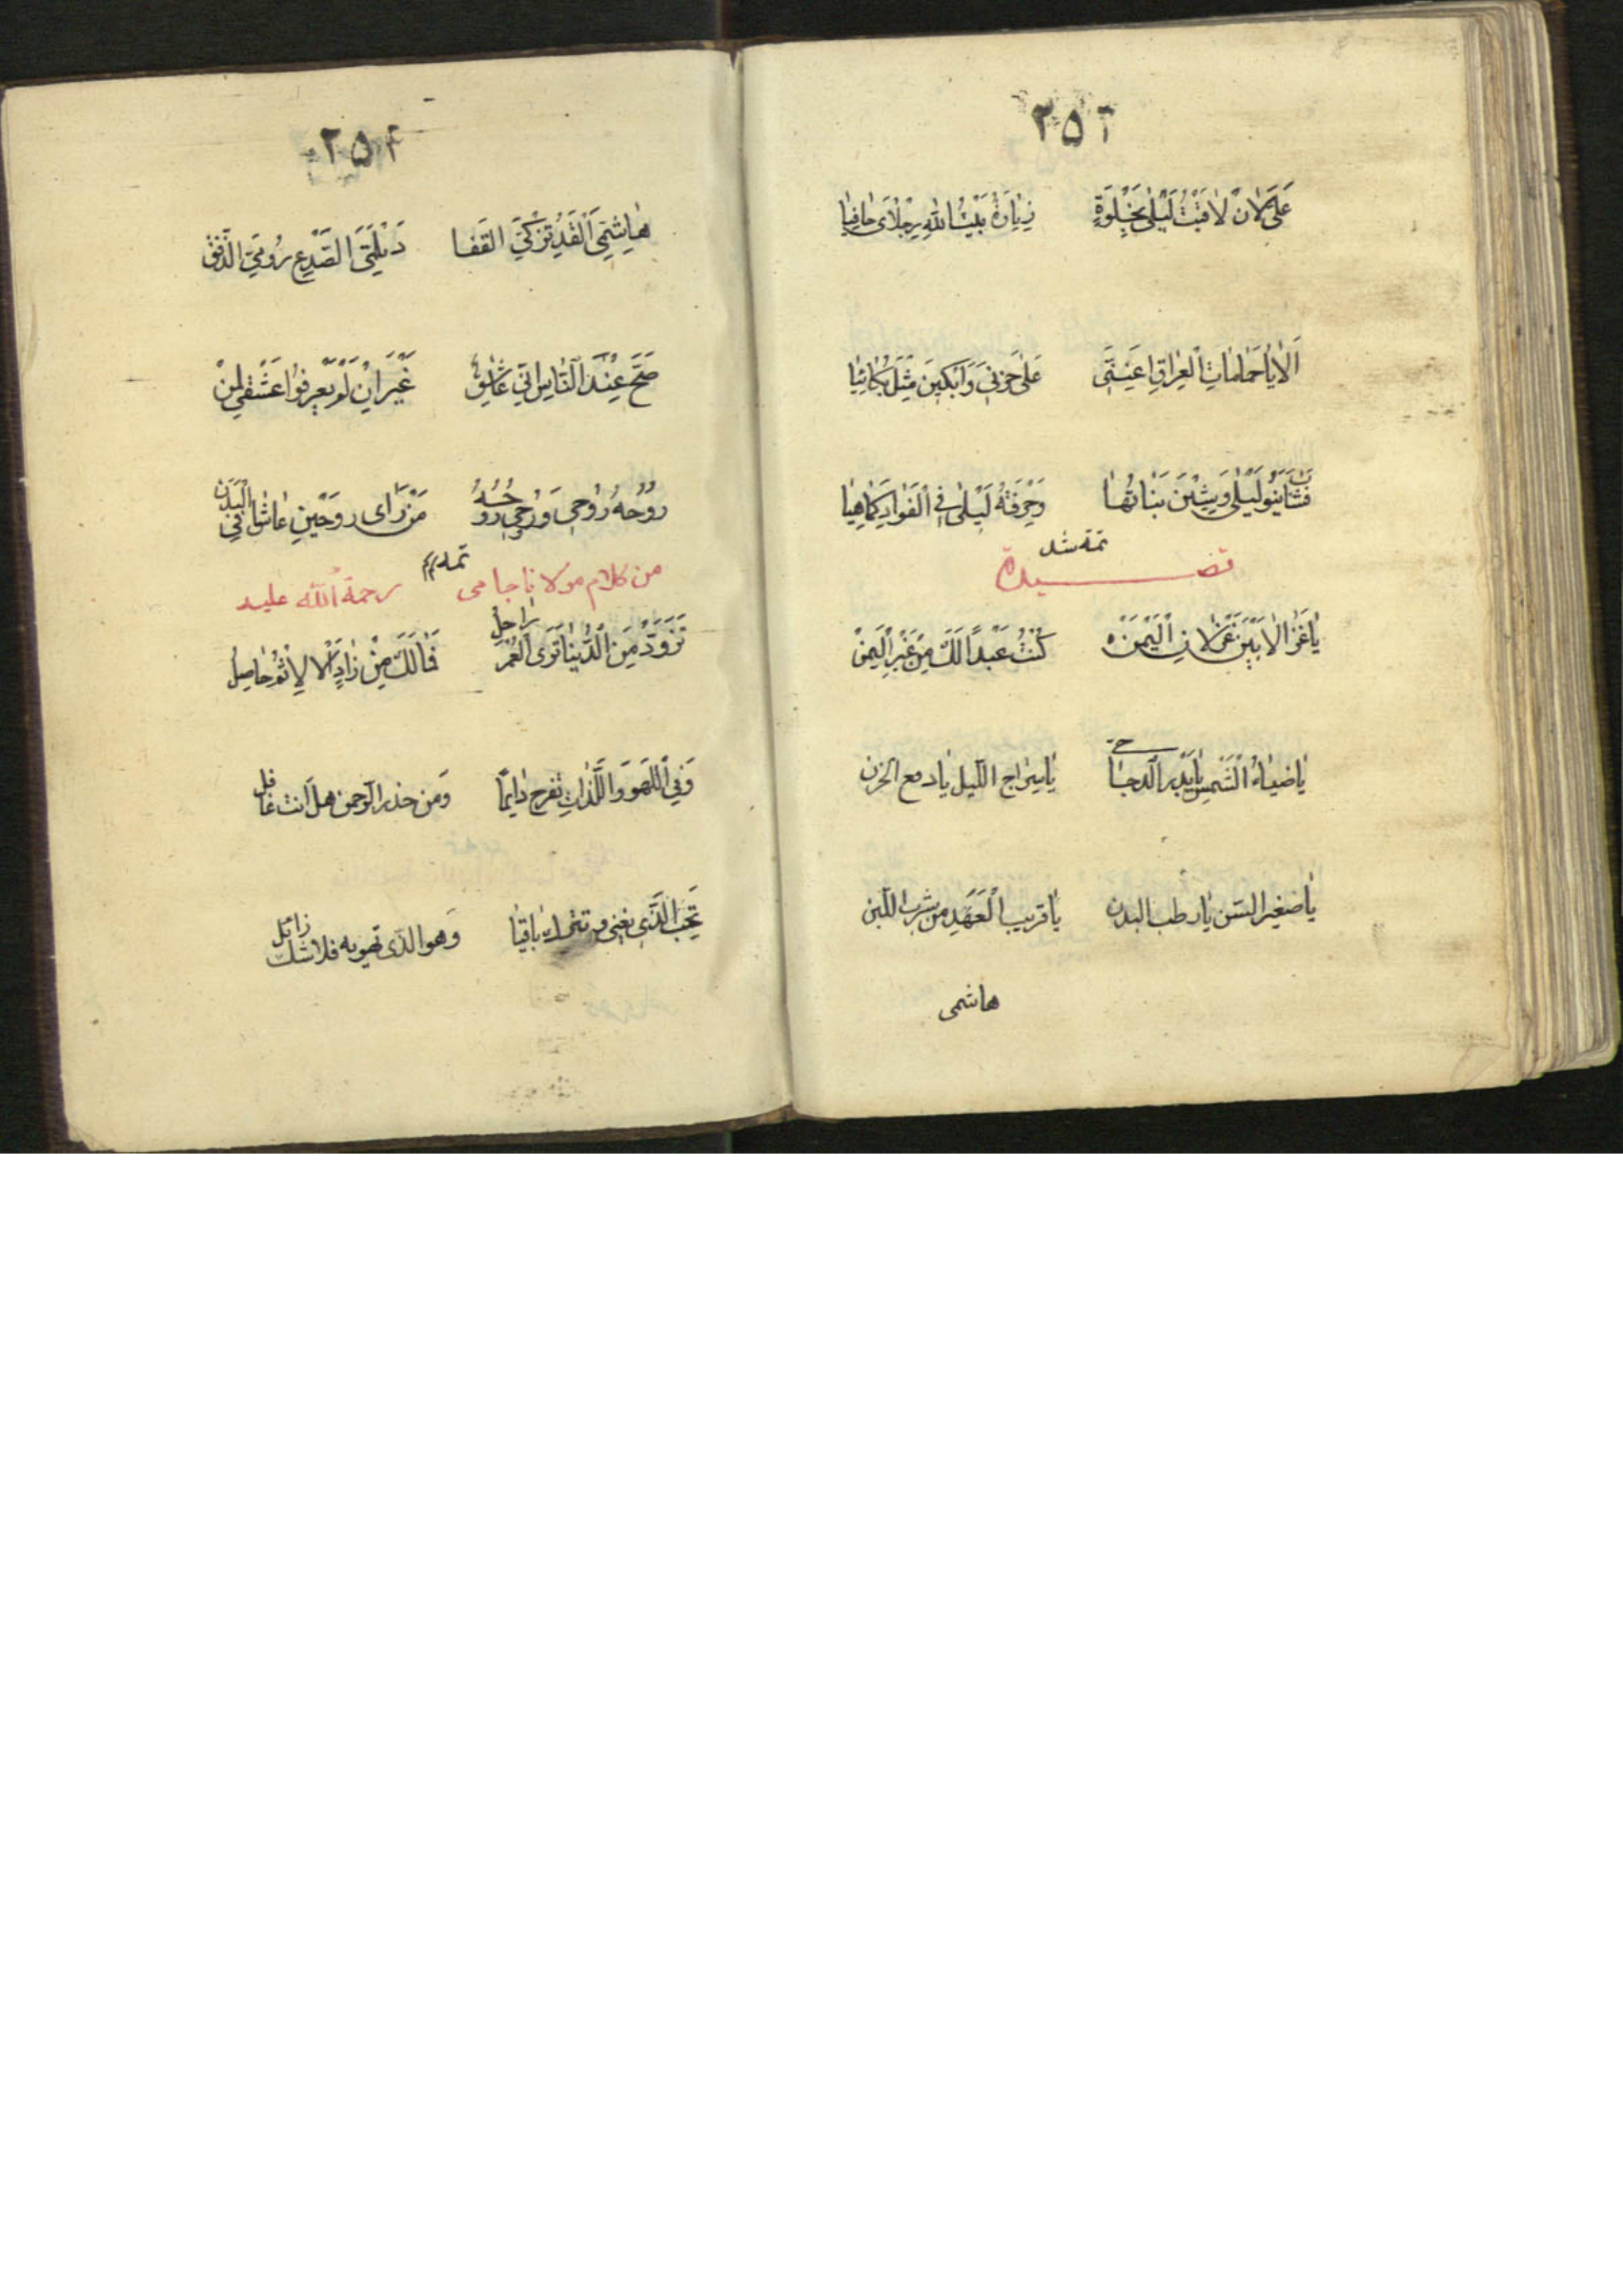 ٢٥٣
عَلَيَّ لَاِنْ لَاقَيْتُ لَيْلٰى بِخَلْوَةٍ زِيَارَةُ بَيْتُ اللهِ رِجْلَاىَ حَافِيَا
اَلَا يَا حَمَامَاتِ الْعِرَاقِ اَعِنَّنِى عَلٰى حَزَنِى وَابْكِينَ مِثْلَ بُكَائِيَا
فَشَابَ بَنُو لَيْلٰى وَشِبْنَ بَنَاتُهَا وَحُرْقَةُ لَيْلٰى فِى الْفَوَادِ كَمَاهِيَا
تمه شد
قصيدة
يَا غَزَالًا بَيْنَ غِزْلَانِ الْيَمَنْ كُنْتُ عَبْدًا لَكَ مِنْ غَيْرِ الثَّمَنْ
يَا ضِيَاءُ الشَّمْسِ يَا بَدْرَ الدُّجَا يَا سِرَاجَ اللَّيلِ يا دمع الحزن
يا صغير السّن يا رطب البدن يا قريب الْعَهْدِ من شرب اللّبن
هاشمى
٢٥٤
هَاشِمِىَ الْقَدِّ تُرْكِيَّ القَفا دَيْلَمِىَّ الصَّدْغِ رُومِيَّ الذَّقَنْ
صَحَّ عِنْدَ النَّاسِ اَنِّى عَاشِقٌ غَيْرَ اَنْ لَمْ يَعْرِفُوا عَشْقِى لِمَنْ
رُوحُهُ رُوْحِى وَرُوحِى رُوْحُهُ مَنْ رَاى روحَيْنِ عَاشَا فِى الْبَدَنْ
تمه
من كلام مولانا جامى رحمة الله عليه
تَزَوَّدْ مِنَ الدُّنْيَا تَرَى الْعُمْرُ رَاحِلُ فَمَا لَكَ مِنْ زَادٍ اَلَا لِاثْمُ حَاصِلُ
وَفِى اللَّهْوِ وَاللَّذَّاتِ تفرح دَائِمًا وَمن حذر الرّحمن هل اَنت غافل
تُحِبُّ الَّذِى يفنى و باقِيًا وَهو الذى تهويه فلا شك زائل